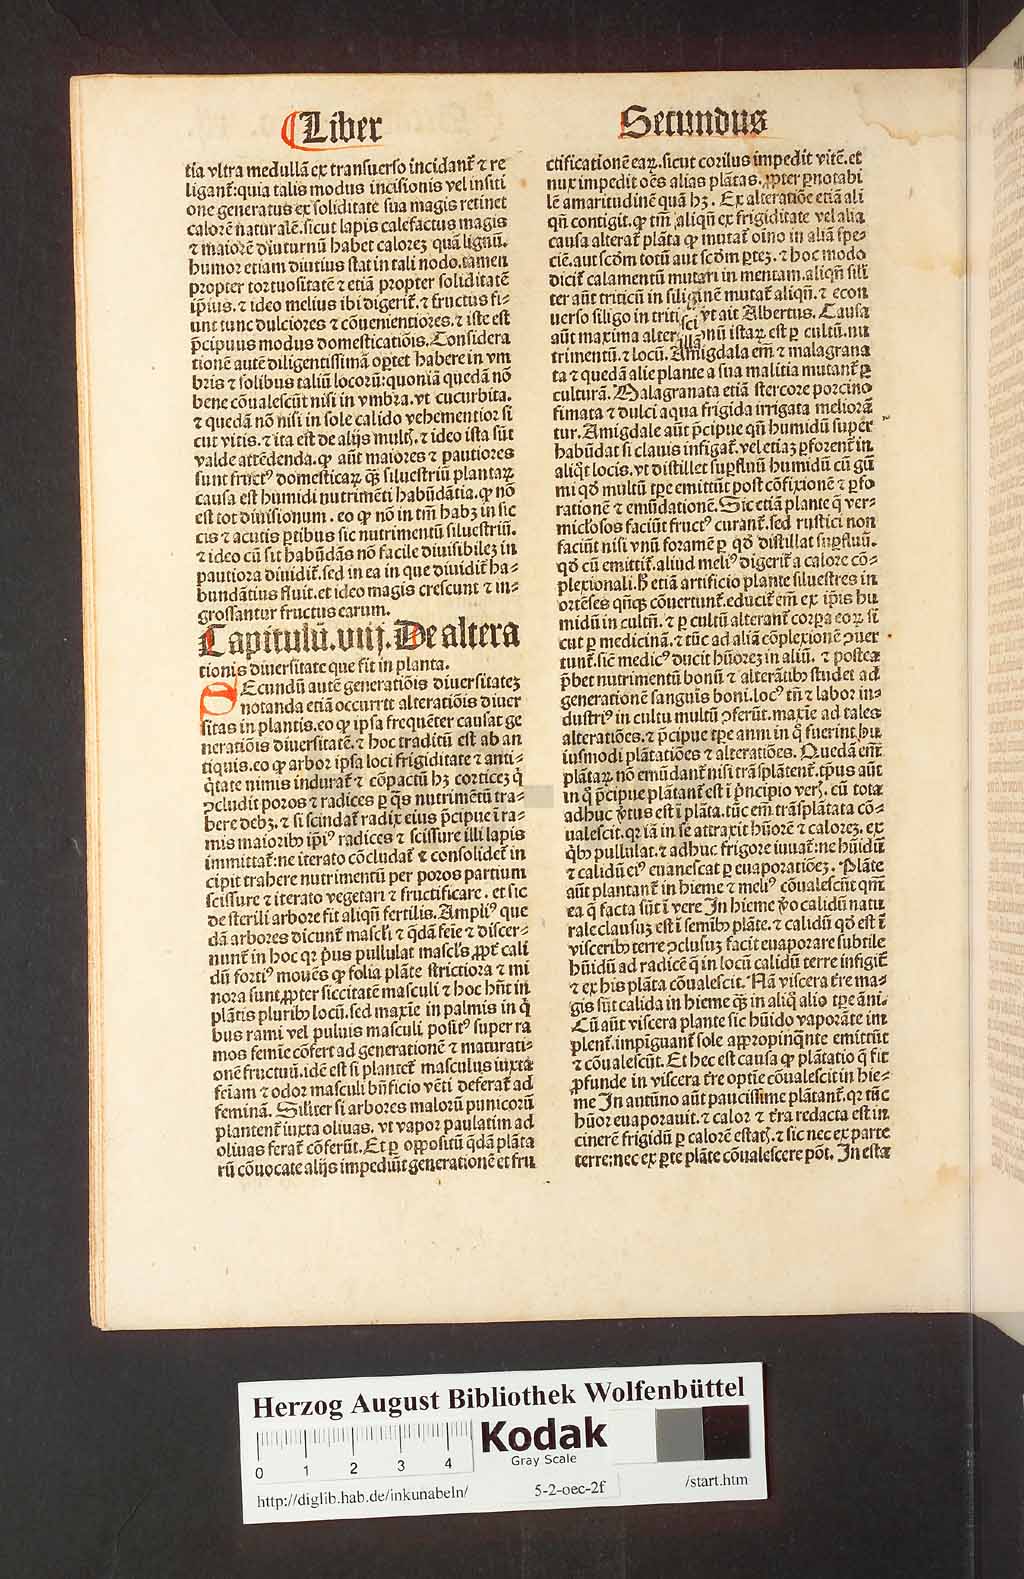 Liber
Secundus
tia vltra medullã ex transuerso incidanť ⁊ re
liganť: quia talis modus incisionis vel insiti
one generatus ex soliditate sua magis retinet
calorẽ naturalẽ. sicut lapis calefactus magis
⁊ maiorẽ diuturnũ habet calorez quã lignũ.
humor etiam diutius stat in tali nodo. tamen
propter tortuositatẽ ⁊ etiã propter soliditatẽ
ip̃ius. ⁊ ideo melius ibi digeriť. ⁊ fructus fi-
unt tunc dulciores ⁊ cõuenientiores. ⁊ iste est
p̃cipuus modus domesticatiõis. Considera
tionẽ autẽ diligentissimã oꝑtet habere in vm
bris ⁊ solibus taliũ locorũ: quoniã quedã nõ
bene cõualescũt nisi in vmbra. vt cucurbita.
⁊ quedã nõ nisi in sole calido vehementior si
cut vitis. ⁊ ita est de alijs multꝭ. ⁊ ideo ista sũt
valde attẽdenda. ꝙ aũt maiores ⁊ pautiores
sunt fructꝰ domesticaꝝ q̃ꝫ siluestriũ plantaꝝ
causa est humidi nutrimẽti habũdãtia. ꝙ nõ
est tot diuisionum. eo ꝙ nõ in tm̃ habꝫ in sic
cis ⁊ acutis ꝑtibus sic nutrimentũ siluestriũ.
⁊ ideo cũ sit habũdãs nõ facile diuisibilez in
pautiora diuidiť. sed in ea in que diuidiť ha-
bundãtius fluit. et ideo magis crescunt ⁊ in-
grossantur fructus earum.
Capitulũ. viij. De altera
tionis diuersitate que fit in planta.
SEcundũ autẽ generatiõis diuersitatez
notanda etiã occurrit alteratiõis diuer
sitas in plantis. eo ꝙ ipsa frequẽter causat ge
neratiõis diuersitatẽ. ⁊ hoc traditũ est ab an
tiquis. eo ꝙ arbor ipsa loci frigiditate ⁊ anti-
q̃tate nimis indurať ⁊ cõpactũ hꝫ corticez q̃
ↄcludit poros ⁊ radices ꝑ q̃s nutrimẽtũ tra-
bere debꝫ. ⁊ si scindať radix eius p̃cipue ĩ ra-
mis maioribꝰ ip̃iꝰ radices ⁊ scissure illi lapis
immittať: ne iterato cõcludať ⁊ consolideť in
cipit trahere nutrimentũ per poros partium
scissure ⁊ iterato vegetari ⁊ fructificare. et sic
de sterili arbore fit aliqñ fertilis. Ampliꝰ que
dã arbores dicunť mascł'i ⁊ q̃dã feĩe ⁊ discer-
nunť in hoc qꝛ p̃us pullulat mascł's ꝓpť cali
dũ fortiꝰ mouẽs ꝙ folia plãte strictiora ⁊ mi
nora sunt ꝓpter siccitatẽ masculi ⁊ hoc hñt in
plãtis pluribꝰ locũ. sed maxĩe in palmis in q̃
bus rami vel puluis masculi positꝰ super ra
mos femĩe cõfert ad generationẽ ⁊ maturati-
onẽ fructuũ. idẽ est si planteť masculus iuxta
feĩam ⁊ odor masculi bñficio vẽti deferať ad
feminã. Siliter si arbores malorũ punicorũ
plantenť iuxta oliuas. vt vapor paulatim ad
oliuas ferať cõferũt. Et ꝑ oppositũ q̃dã plãta
rũ cõuocate alijs impediũt generationẽ et fru
ctificationẽ eaꝝ. sicut corilus impedit vitẽ. et
nux impedit oẽs alias plãtas. ꝓpter ꝑnotabi
lẽ amaritudinẽ quã hꝫ. Ex alteratiõe etiã ali
qñ contigit. ꝙ tm̃ aliqñ ex frigiditate vel alia
causa alterať plãta ꝙ mutať oĩno in aliã spe-
ciẽ. aut scd̃m totũ aut scd̃m ꝑtez. ⁊ hoc modo
diciť calamentũ mutari in mentam. aliqñ sili
ter aũt triticũ in siliginẽ mutať aliqñ. ⁊ econ
uerso siligo in triticũ vt ait Albertus. Causa
aũt maxima alterationũ istaꝝ est ꝑ cultũ. nu
trimentũ. ⁊ locũ. Amigdala em̃ ⁊ malagrana
ta ⁊ quedã alie plante a sua malitia mutanť ꝑ
culturã. Malagranata etiã stercore porcino
fimata ⁊ dulci aqua frigida irrigata meliorã
tur. Amigdale aũt p̃cipue qñ humidũ super
habũdat si clauis infigať. vel etiaz ꝑforenť in
aliq̃t locis. vt distillet suꝑfluũ humidũ cũ gũ
mi qd̃ multũ tꝑe emittũt post cõfixionẽ ⁊ ꝑfo
rationẽ ⁊ emũdationẽ. Sic etiã plante q̃ ver-
miclosos faciũt fructꝰ curanť. sed rustici non
faciũt nisi vnũ foramẽ ꝑ qd̃ distillat suꝑfluũ.
qd̃ cũ emittiť. aliud meliꝰ digeriť a calore cõ-
plexionali. H̃ etiã artificio plante siluestres in
ortẽses qñqꝫ cõuertunť. educiť em̃ ex ip̃is hu
midũ in cultũ. ⁊ ꝑ cultũ alteranť corꝑa eoꝝ si
cut ꝑ medicinã. ⁊ tũc ad aliã cõplexionẽ ↄuer
tunť. sic̃ medicꝰ ducit hũorez in aliũ. ⁊ postea
p̃bet nutrimentũ bonũ ⁊ alterãtibꝰ studet ad
generationẽ sanguis boni. locꝰ tñ ⁊ labor in-
dustriꝰ in cultu multũ ↄferũt. maxĩe ad tales
alteratiões. ⁊ p̃cipue tꝑe anni in q̃ fuerint hu
iusmodi plãtatiões ⁊ alteratiões. Quedã em̃
plãtaꝝ nõ emũdanť nisi trãsplãtenť. tp̃us aũt
in q̃ p̃cipue plãtanť est ĩ p̃ncipio verꝭ. cũ tota
adhuc ṽtus est ĩ plãta. tũc em̃ trãsplãtata cõ-
ualescit. qꝛ iã in se attraxit hũorẽ ⁊ calorez. ex
q̃bꝰ pullulat. ⁊ adhuc frigore iuuať: ne hũidũ
⁊ calidũ eiꝰ euanescat ꝑ euaporatiõez. Plãte
aũt plantanť in hieme ⁊ meliꝰ cõualescũt qm̃
ea q̃ facta sũt ĩ vere In hieme ṽo calidũ natu
rale clausuz est ĩ semĩbꝰ plãte. ⁊ calidũ qd̃ est ĩ
visceribꝰ terre ↄclusuz facit euaporare subtile
hũidũ ad radicẽ q̃ in locũ calidũ terre infigiť
⁊ ex his plãta cõualescit. Nã viscera tr̃e ma-
gis sũt calida in hieme q̃ꝫ in aliq̃ alio tꝑe ãni.
Cũ aũt viscera plante sic hũido vaporãte im
plenť. impiguanť sole appropinq̃nte emittũt
⁊ cõualescũt. Et hec est causa ꝙ plãtatio q̃ fit
ꝓfunde in viscera tr̃e optĩe cõualescit in hie-
me In autũno aũt paucissime plãtanť. qꝛ tũc
hũor euaporauit. ⁊ calor ⁊ tr̃a redacta est in
cinerẽ frigidũ ꝑ calorẽ estatꝭ. ⁊ sic nec ex parte
terre: nec ex ꝑte plãte cõualescere põt. In esta
Herzog August Bibliothek Wolfenbüttel
0 1 2 3 4
Kodak
Gray Scale
http://diglib.hab.de/inkunabeln/
5-2-oec-2f
/start.htm